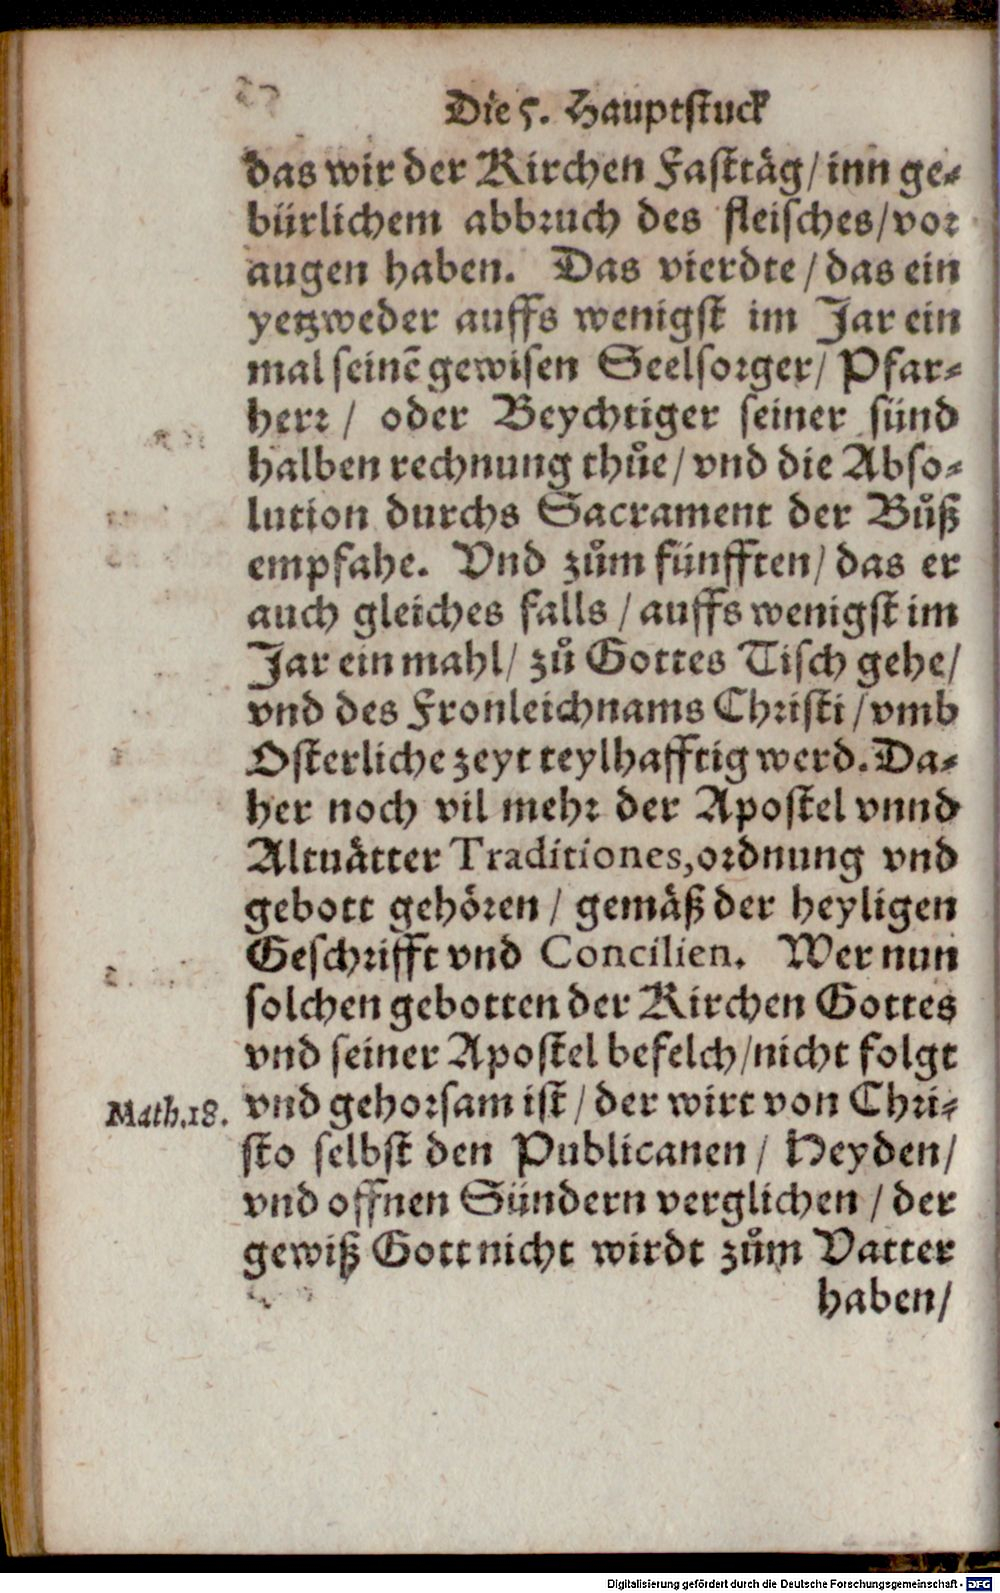 Die 5. Hauptstuck
das wir der Kirchen Fasttäg/ inn ge-
bürlichem abbruch des fleisches/ vor
augen haben. Das vierdte/ das ein
yetzweder auffs wenigst im Jar ein
mal seinē gewisen Seelsorger/ Pfar-
herr/ oder Beychtiger seiner sünd
halben rechnung thůe/ vnd die Abso-
lution durchs Sacrament der Bůß
empfahe. Vnd zům fünfften/ das er
auch gleiches falls/ auffs wenigst im
Jar ein mahl/ zů Gottes Tisch gehe/
vnd des Fronleichnams Christi/ vmb
Osterliche zeyt teylhafftig werd. Da-
her noch vil mehr der Apostel vnnd
Altuätter Traditiones, ordnung vnd
gebott gehören/ gemäß der heyligen
Geschrifft vnd Concilien. Wer nun
solchen gebotten der Kirchen Gottes
vnd seiner Apostel befelch/ nicht folgt
Math.18. vnd gehorsam ist/ der wirt von Chri-
sto selbst den Publicanen/ Heyden/
vnd offnen Sündern verglichen/ der
gewiß Gott nicht wirdt zům Vatter
haben/
Digitalisierung gefördert durch die Deutsche Forschungsgemeinschaft - DFG